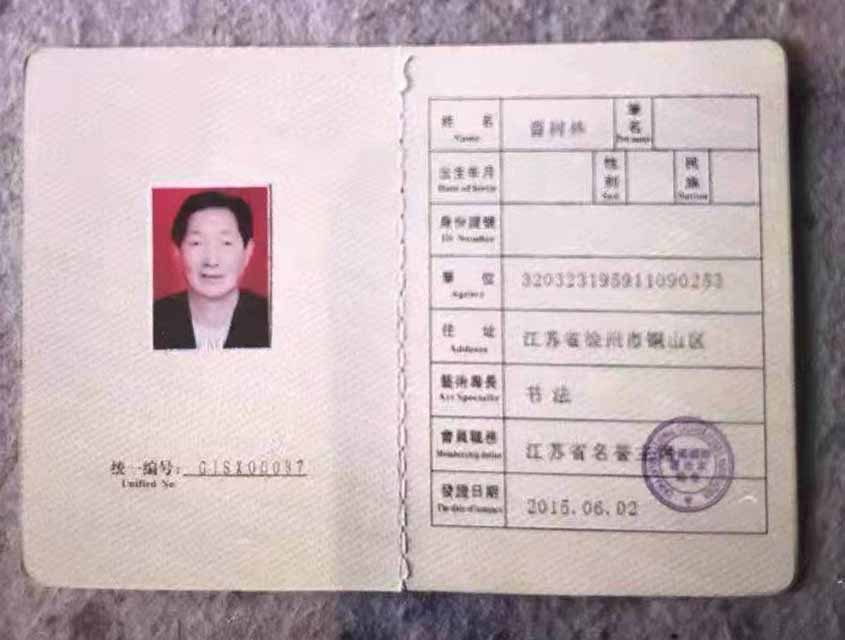 统一编号: GISX00037
Unified No
姓名 曹树林 筆名
Name
出生年月 性别 民族
Date of birth Sex Nation
身份證號
ID Number
單位 320323195911090253
Agency
住址 江苏省徐州市铜山区
Address
藝術專長 书法
Art Specialty
會員職務 江苏省名誉主席
Membership duties
發證日期 2015.06.02
The date of issuance